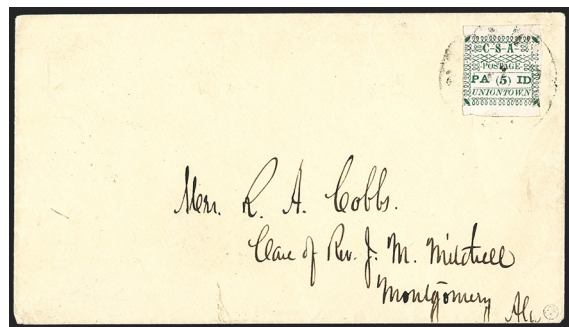 C·S·A·
POSTAGE
PA (5) ID
UNIONTOWN
Mrs. R. A. Cobbs.
Care of Rev. J. M. Mitchell
Montgomery
Ala